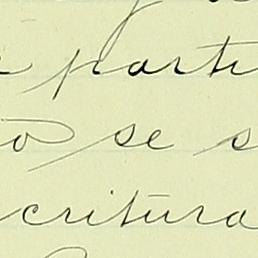 parti
o se s
critura